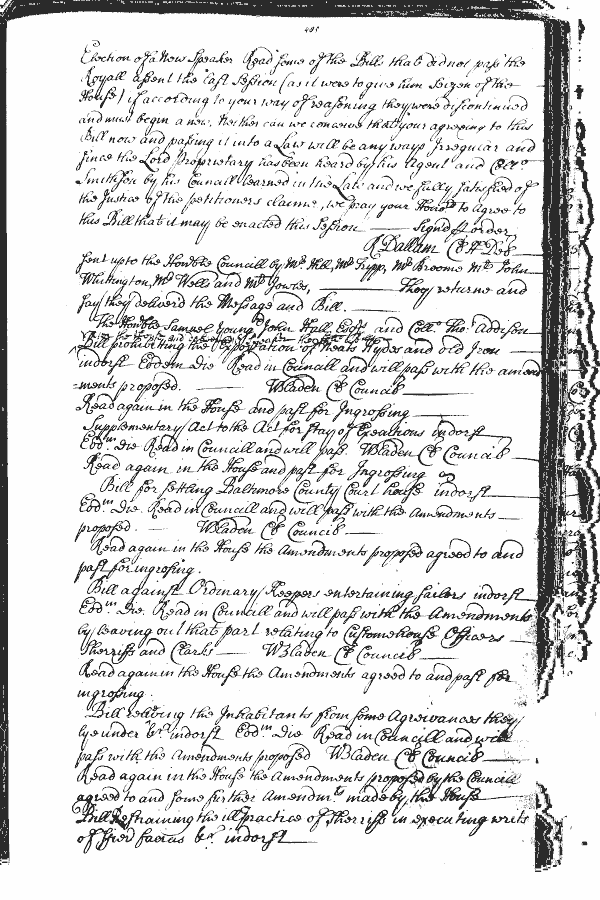 Election of a New Speaker Read some of the Bills that did not pass the
Royall assent the last Session (as it were to give him Seizen of the
House) if according to your way of reasoning they were discontinued
and must begin a new. Neither can we conceive that your agreeing to this
Bill now and passing it into a Law will be any ways Irregular and
since the Lord Proprietary has been heard by his Agent and Coll.º
Smithson by his Councill learned in the Law and we fully satisfied of
the Justice of the petitioners claime, we pray your Hono.rs to agree to
this Bill that it may be enacted this Session Signd p order
R Dallam Cl H Del
Sent up to the Hon.ble Councill by Mr. Hill, Mr. Fripp, Mr. Broome Mr. John
Whitington, Mr. Wells and Mr. Jowles, They returne and
say they deliverd the Message and Bill.
The Hon.ble Samuel Young John Hall Esq.rs and Coll.º Tho: Addison
Bill prohibiting the Exportation of Neats Hydes and old Iron
indorst Eodem Die Read in Councill and will pass with the amend
=ments proposed. WBladen Cl Council
Read again in the House and past for Ingrossing
Supplementary Act to the Act for stay of Executions indorst
Eod.m Die Read in Councill and will pass. WBladen Cl Council
Read again in the House and past for Ingrossing
Bill for settling Baltimore County Court house indorst
Eod.m Die. Read in Councill and will pass with the Amendments
proposed. WBladen Cl Council
Read again in the House the Amendments proposed agreed to and
past for ingrossing.
Bill against Ordinary Keepers entertaining sailors indorst
Eod.m Die. Read in Councill and will pass with the Amendments
by leaving out that part relating to Customehouse Officers
Sherriffs and Clarks WBladen Cl Council
Read again in the House the Amendments agreed to and past for
ingrossing.
Bill relieving the Inhabitants from some Agreivances they
lye under &c.a indorst Eod.m Die Read in Councill and will
pass with the Amendments proposed WBladen Cl Council
Read again in the House the Amendments proposed by the Council
agreed to and some further Amendm.ts made by the House
Bill Restraining the ill practice of Sherriffs in executing writs
of Fieri facias &c.a indorst